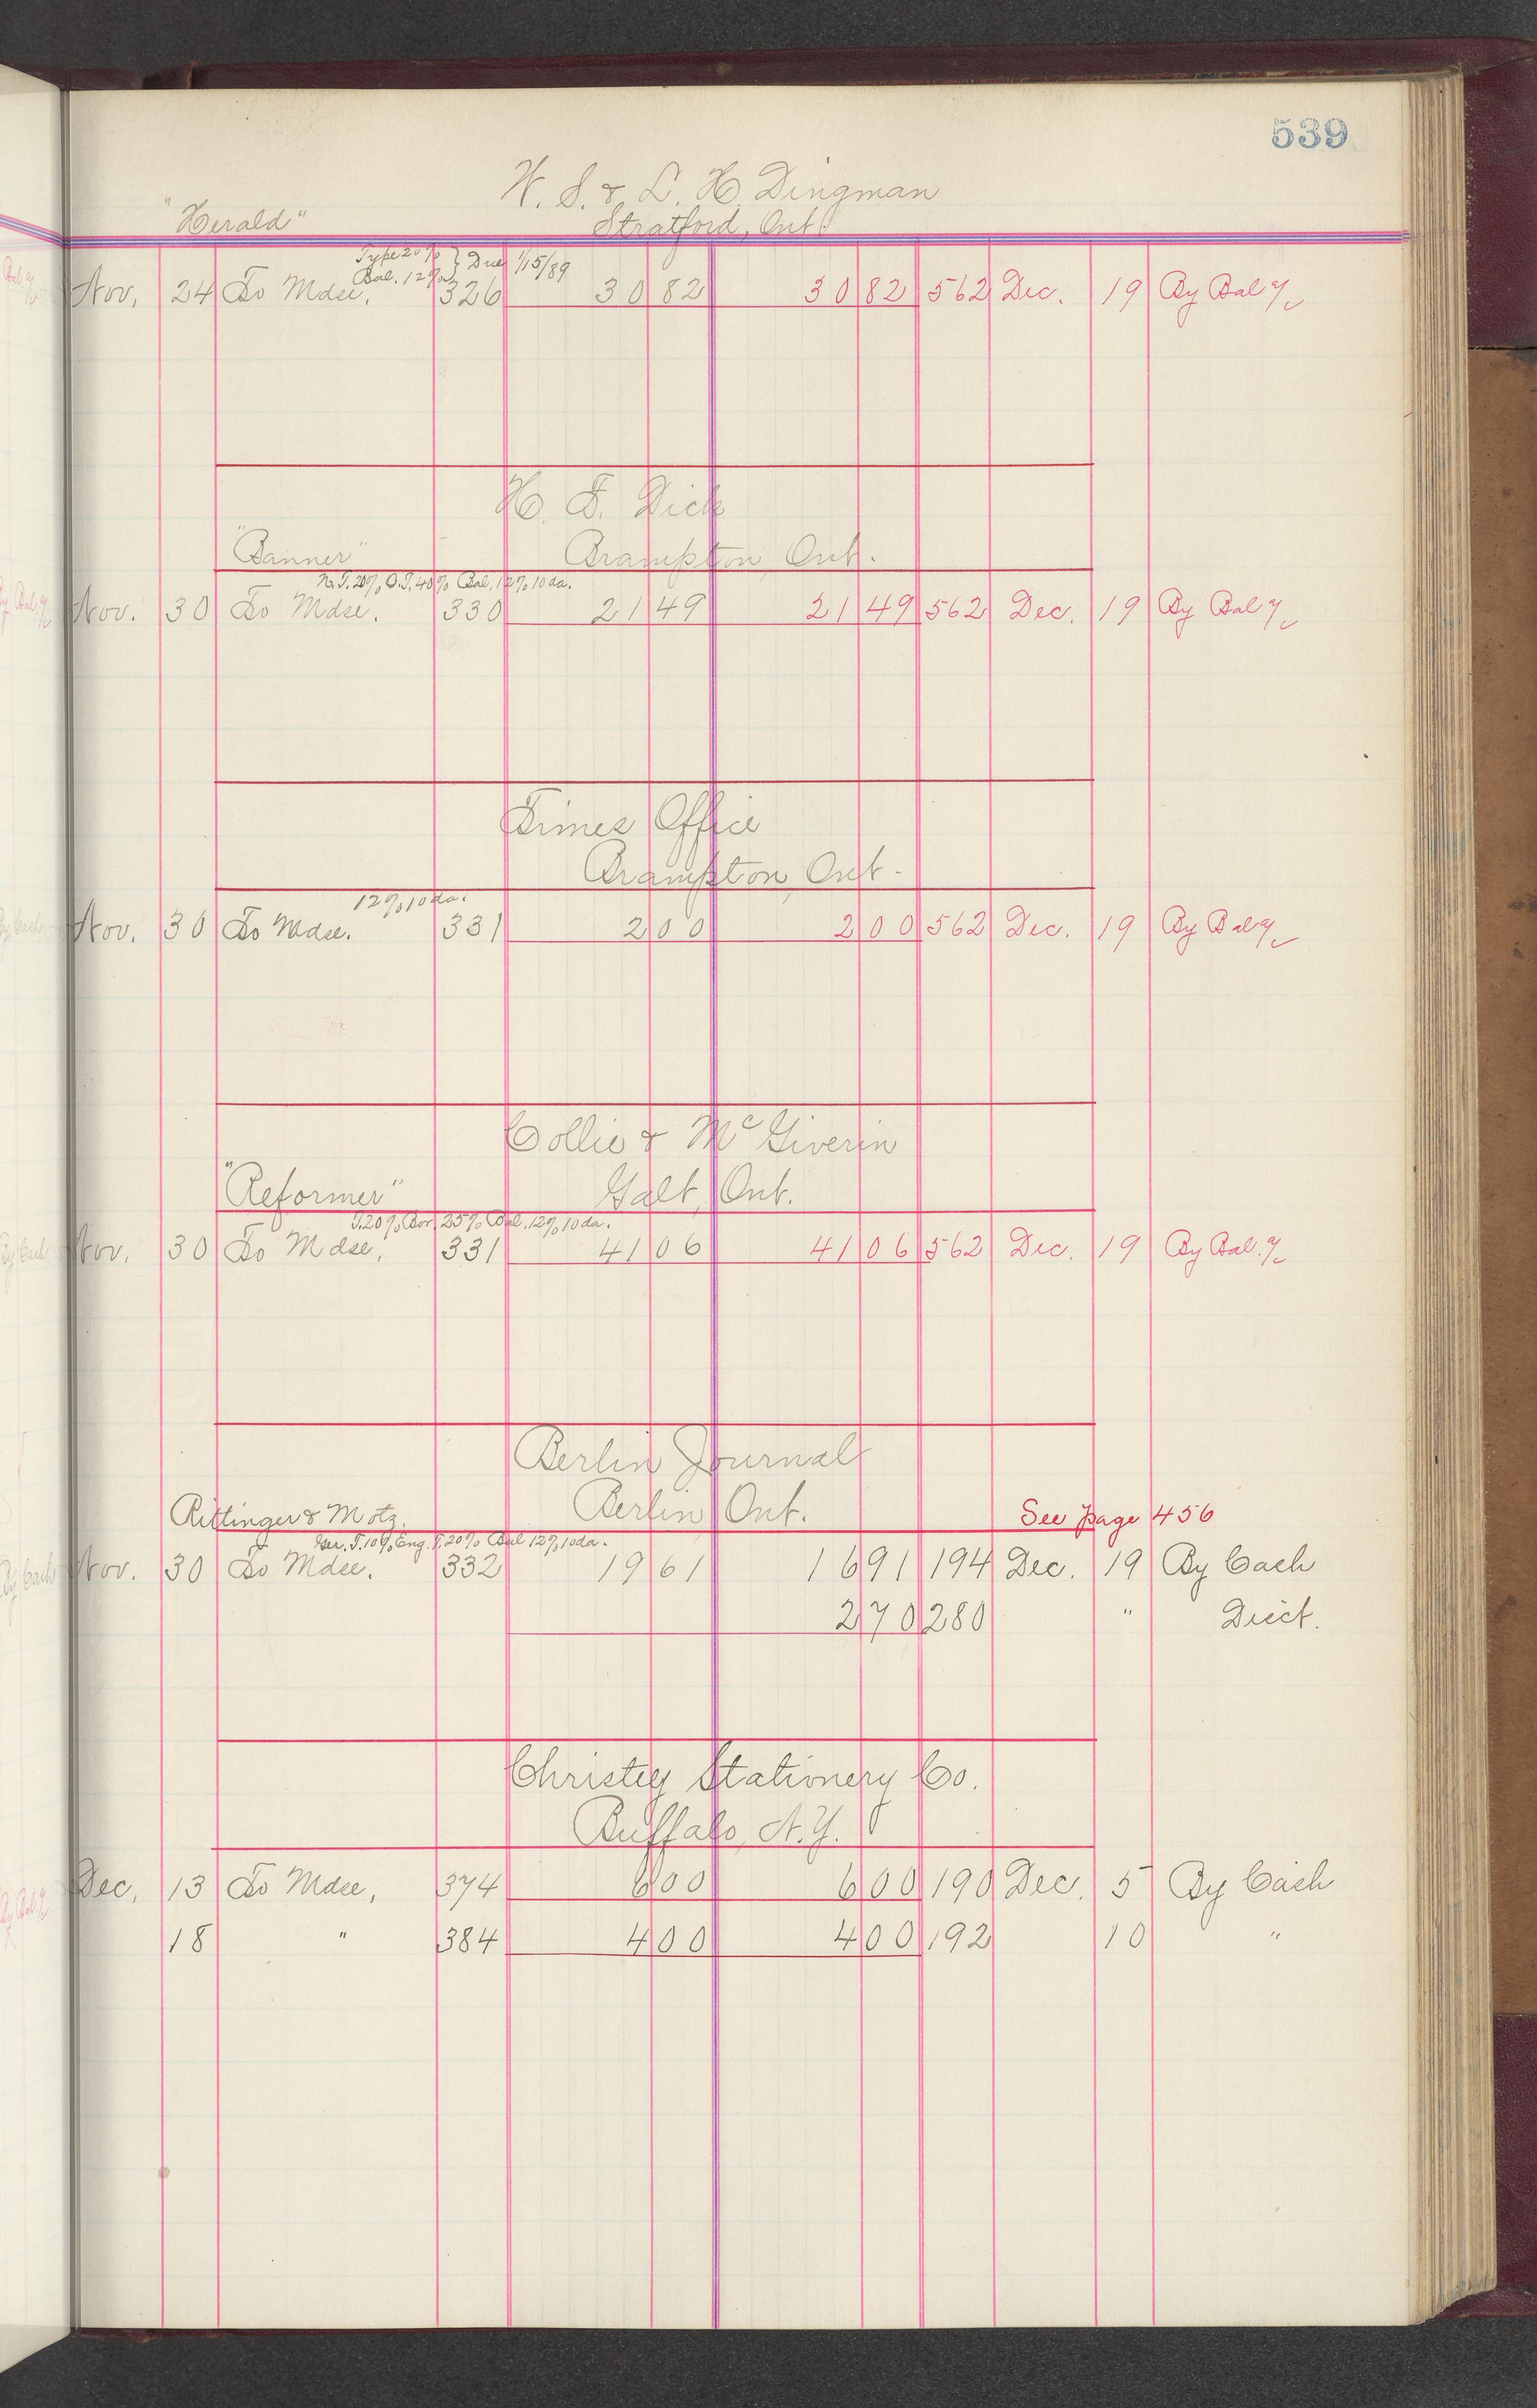 539
W. S. & L. H. Dingman
"Herald" Stratford, Ont.
Type 20% } Due 1/15/89
Bal. 12%
Nov. 24 To Mdse. 326 30 82 30 82 562 Dec. 19 By Bal a/c
H. F. Dick
"Banner" Brampton, Ont.
N.T. 20% O.T. 40% Bal. 12% 10 da.
Nov. 30 To Mdse. 330 21 49 21 49 562 Dec. 19 By Bal a/c
Times Office
Brampton, Ont.
12% 10 da.
Nov. 30 To Mdse. 331 2 00 2 00 562 Dec. 19 By Bal a/c
Collie & McGiverin
"Reformer" Galt, Ont.
T. 20% Bor. 25% Bal. 12% 10 da.
Nov. 30 To Mdse. 331 41 06 41 06 562 Dec. 19 By Bal. a/c
Berlin Journal
Rittinger & Motz. Berlin Ont. See page 456
Ger. T. 10% Eng. T. 20% Bal 12% 10 da.
Nov. 30 To Mdse. 332 19 61 16 91 194 Dec. 19 By Cash
2 70 280 " Disct.
Christey Stationery Co.
Buffalo, N.Y.
Dec. 13 To Mdse. 374 6 00 6 00 190 Dec. 5 By Cash
18 " 384 4 00 4 00 192 10 "